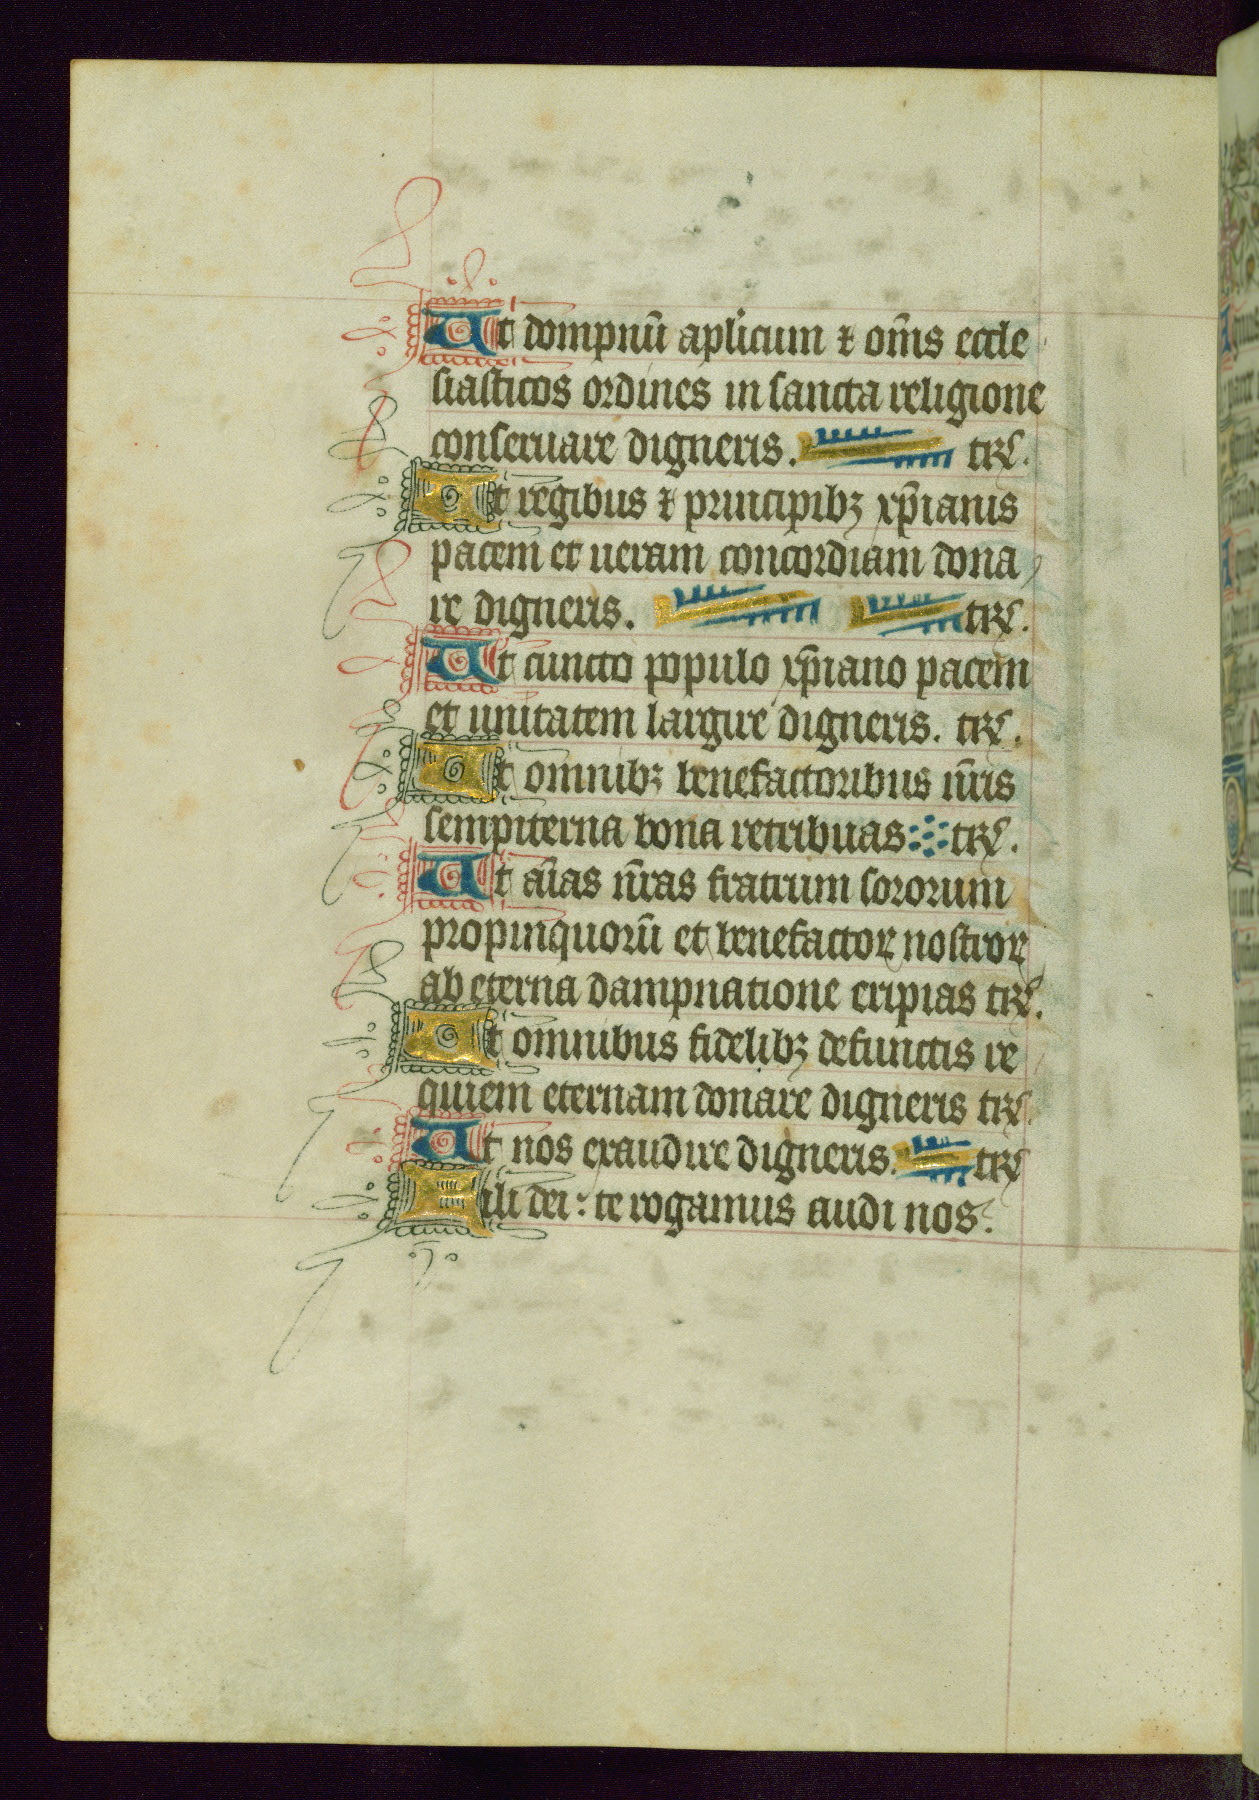 Ut dompnū aplicum ⁊ om̄s eccle
siasticos ordines in sancta religione
conseruare digneris. trꝭ.
Ut regibus ⁊ principibꝫ xp̄ianis
pacem et ueram concordiam dona
re digneris. trꝭ.
Ut cuncto populo xp̄iano pacem
et unitatem largire digneris. trꝭ.
Ut omnibꝫ benefactoribus nr̄is
sempiterna bona retribuas trꝭ.
Ut aīas nr̄as fratrum sororum
propinquorū et benefactoꝝ nostroꝝ
ab eterna dampnatione eripias trꝭ.
Ut omnibus fidelibꝫ defunctis re
quiem eternam donare digneris trꝭ.
Ut nos exaudire digneris. trꝭ
Fili dei: te rogamus audi nos.